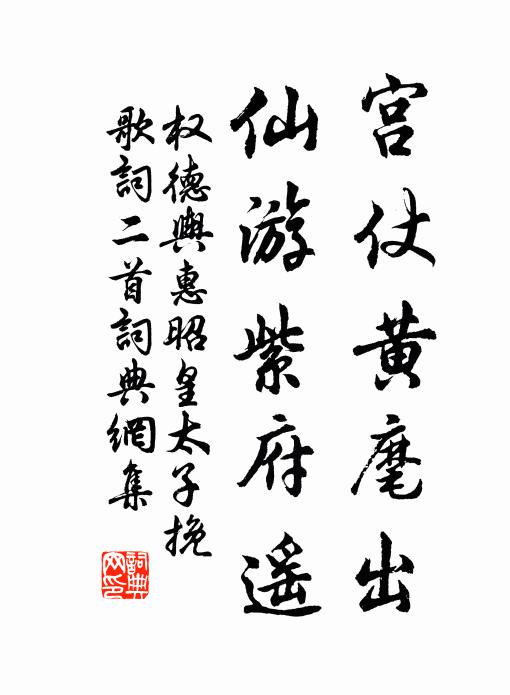 宫仗黄麾出
仙游紫府遥
权德舆惠昭皇太子挽
歌詞二首詞典網集
詞典
网印